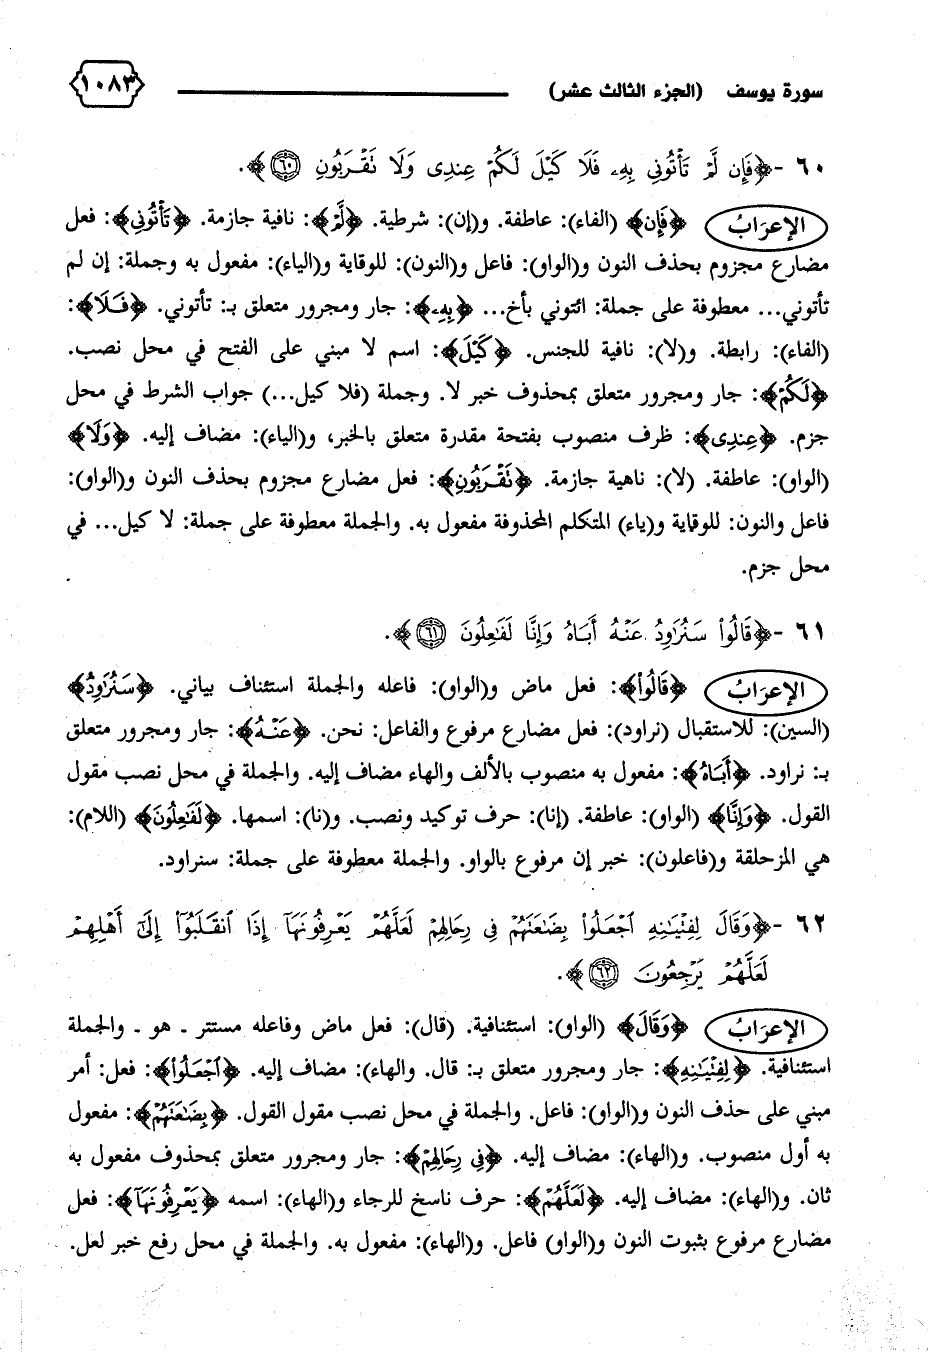 سورة يوسف (الجزء الثالث عشر) ١٠٨٣
٦٠ -﴿فَإِن لَّمْ تَأْتُونِي بِهِۦ فَلَا كَيْلَ لَكُمْ عِندِى وَلَا تَقْرَبُونِ ٦٠﴾.
الإعرَابُ ﴿فَإِن﴾ (الفاء): عاطفة. و(إن): شرطية. ﴿لَّمْ﴾: نافية جازمة. ﴿تَأْتُونِي﴾: فعل
مضارع مجزوم بحذف النون و(الواو): فاعل و(النون): للوقاية و(الياء): مفعول به وجملة: إن لم
تأتوني... معطوفة على جملة: ائتوني بأخ... ﴿بِهِۦ﴾: جار ومجرور متعلق بـ: تأتوني. ﴿فَلَا﴾:
(الفاء): رابطة. و(لا): نافية للجنس. ﴿كَيْلَ﴾: اسم لا مبني على الفتح في محل نصب.
﴿لَكُمْ﴾: جار ومجرور متعلق بمحذوف خبر لا. وجملة (فلا كيل...) جواب الشرط في محل
جزم. ﴿عِندِى﴾: ظرف منصوب بفتحة مقدرة متعلق بالخبر، و(الياء): مضاف إليه. ﴿وَلَا﴾
(الواو): عاطفة. (لا): ناهية جازمة. ﴿تَقْرَبُونِ﴾: فعل مضارع مجزوم بحذف النون و(الواو):
فاعل والنون: للوقاية و(ياء) المتكلم المحذوفة مفعول به. والجملة معطوفة على جملة: لا كيل... في
محل جزم.
٦١ -﴿قَالُوا۟ سَنُرَٰوِدُ عَنْهُ أَبَاهُ وَإِنَّا لَفَٰعِلُونَ ٦١﴾.
الإعرَابُ ﴿قَالُوا۟﴾: فعل ماض و(الواو): فاعله والجملة استئناف بياني. ﴿سَنُرَٰوِدُ﴾
(السين): للاستقبال (نراود): فعل مضارع مرفوع والفاعل: نحن. ﴿عَنْهُ﴾: جار ومجرور متعلق
بـ: نراود. ﴿أَبَاهُ﴾: مفعول به منصوب بالألف والهاء مضاف إليه. والجملة في محل نصب مقول
القول. ﴿وَإِنَّا﴾ (الواو): عاطفة. (إنا): حرف توكيد ونصب. و(نا): اسمها. ﴿لَفَٰعِلُونَ﴾ (اللام):
هي المزحلقة و(فاعلون): خبر إن مرفوع بالواو. والجملة معطوفة على جملة: سنراود.
٦٢ -﴿وَقَالَ لِفِتْيَٰنِهِ ٱجْعَلُوا۟ بِضَٰعَتَهُمْ فِى رِحَالِهِمْ لَعَلَّهُمْ يَعْرِفُونَهَآ إِذَا ٱنقَلَبُوٓا۟ إِلَىٰٓ أَهْلِهِمْ
لَعَلَّهُمْ يَرْجِعُونَ ٦٢﴾.
الإعرَابُ ﴿وَقَالَ﴾ (الواو): استئنافية. (قال): فعل ماض وفاعله مستتر - هو - والجملة
استئنافية. ﴿لِفِتْيَٰنِهِ﴾: جار ومجرور متعلق بـ: قال. والهاء): مضاف إليه. ﴿ٱجْعَلُوا۟﴾: فعل: أمر
مبني على حذف النون و(الواو): فاعل. والجملة في محل نصب مقول القول. ﴿بِضَٰعَتَهُمْ﴾: مفعول
به أول منصوب. و(الهاء): مضاف إليه. ﴿فِى رِحَالِهِمْ﴾: جار ومجرور متعلق بمحذوف مفعول به
ثان. و(الهاء): مضاف إليه. ﴿لَعَلَّهُمْ﴾: حرف ناسخ للرجاء و(الهاء): اسمه ﴿يَعْرِفُونَهَآ﴾: فعل
مضارع مرفوع بثبوت النون و(الواو) فاعل. و(الهاء): مفعول به. والجملة في محل رفع خبر لعل.